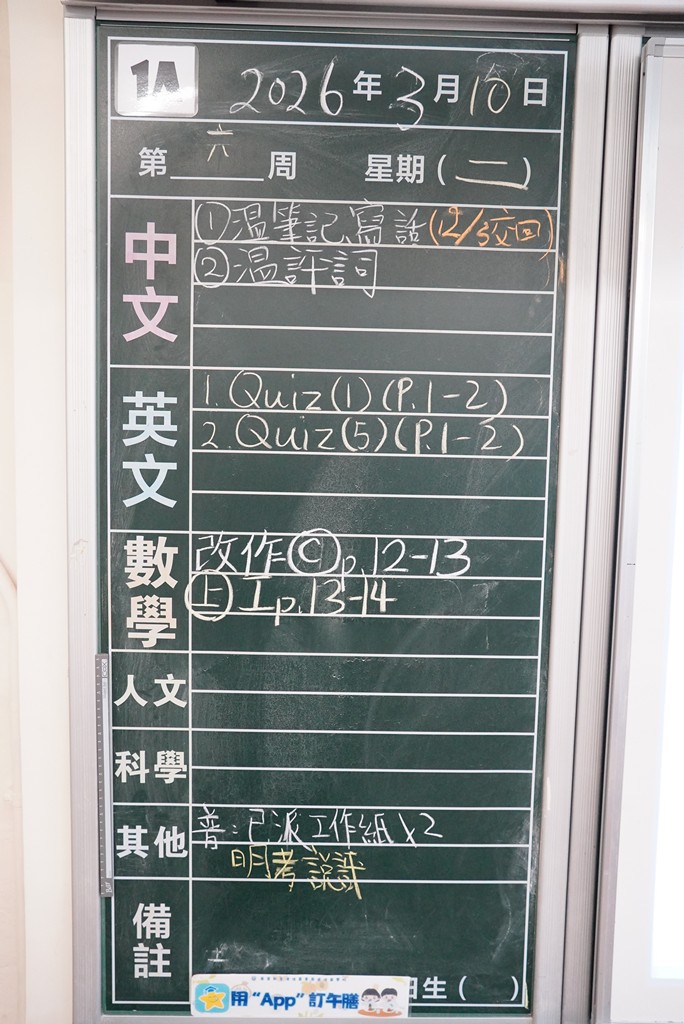 1A 2026年3月10日
第六周 星期(二)
中文
①溫筆記、寫話(12/3交回)
②溫評詞
英文
1. Quiz(1)(P.1-2)
2. Quiz(5)(P.1-2)
數學
改作Ⓒp.12-13
㊤工p.13-14
人文
科學
其他
普:已派工作紙x2
明考說評
備註
用“App”訂午膳
日生( )